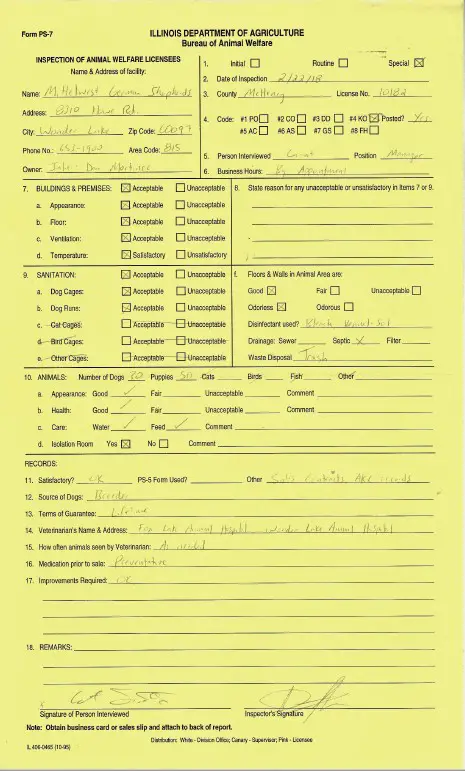 Form PS-7
ILLINOIS DEPARTMENT OF AGRICULTURE
Bureau of Animal Welfare
INSPECTION OF ANIMAL WELFARE LICENSEES
Name & Address of facility:
Name: Midwest German Shepherds
Address: 8210 Howe Rd.
City: Wonder Lake Zip Code: 60097
Phone No.: 653-1900 Area Code: 815
Owner: Dan Martinez
1. Initial Routine Special
2. Date of Inspection 2/22/18
3. County McHenry License No. 10182
4. Code: #1 PO #2 CO #3 DD #4 KO Posted? Yes
#5 AC #6 AS #7 GS #8 FH
5. Person Interviewed Position Manager
6. Business Hours: By Appointment
7. BUILDINGS & PREMISES: Acceptable Unacceptable
a. Appearance: Acceptable Unacceptable
b. Floor: Acceptable Unacceptable
c. Ventilation: Acceptable Unacceptable
d. Temperature: Satisfactory Unsatisfactory
8. State reason for any unacceptable or unsatisfactory in Items 7 or 9.
9. SANITATION: Acceptable Unacceptable
a. Dog Cages: Acceptable Unacceptable
b. Dog Runs: Acceptable Unacceptable
c. Cat Cages: Acceptable Unacceptable
d. Bird Cages: Acceptable Unacceptable
e. Other Cages: Acceptable Unacceptable
f. Floors & Walls in Animal Area are:
Good Fair Unacceptable
Odorless Odorous
Disinfectant used? Bleach
Drainage: Sewer Septic X Filter
Waste Disposal Trash
10. ANIMALS: Number of Dogs 20 Puppies 50 Cats Birds Fish Other
a. Appearance: Good Fair Unacceptable Comment
b. Health: Good Fair Unacceptable Comment
c. Care: Water Feed Comment
d. Isolation Room Yes No Comment
RECORDS:
11. Satisfactory? OK PS-5 Form Used? Other Sales Contracts, AKC records
12. Source of Dogs: Breeder
13. Terms of Guarantee: Lifetime
14. Veterinarian's Name & Address: Fox Lake Animal Hospital Wonder Lake Animal Hospital
15. How often animals seen by Veterinarian: As needed
16. Medication prior to sale: Preventative
17. Improvements Required: OK
18. REMARKS:
Signature of Person Interviewed Inspector's Signature
Note: Obtain business card or sales slip and attach to back of report.
Distribution: White - Division Office; Canary - Supervisor; Pink - Licensee
IL 406-0465 (10-95)